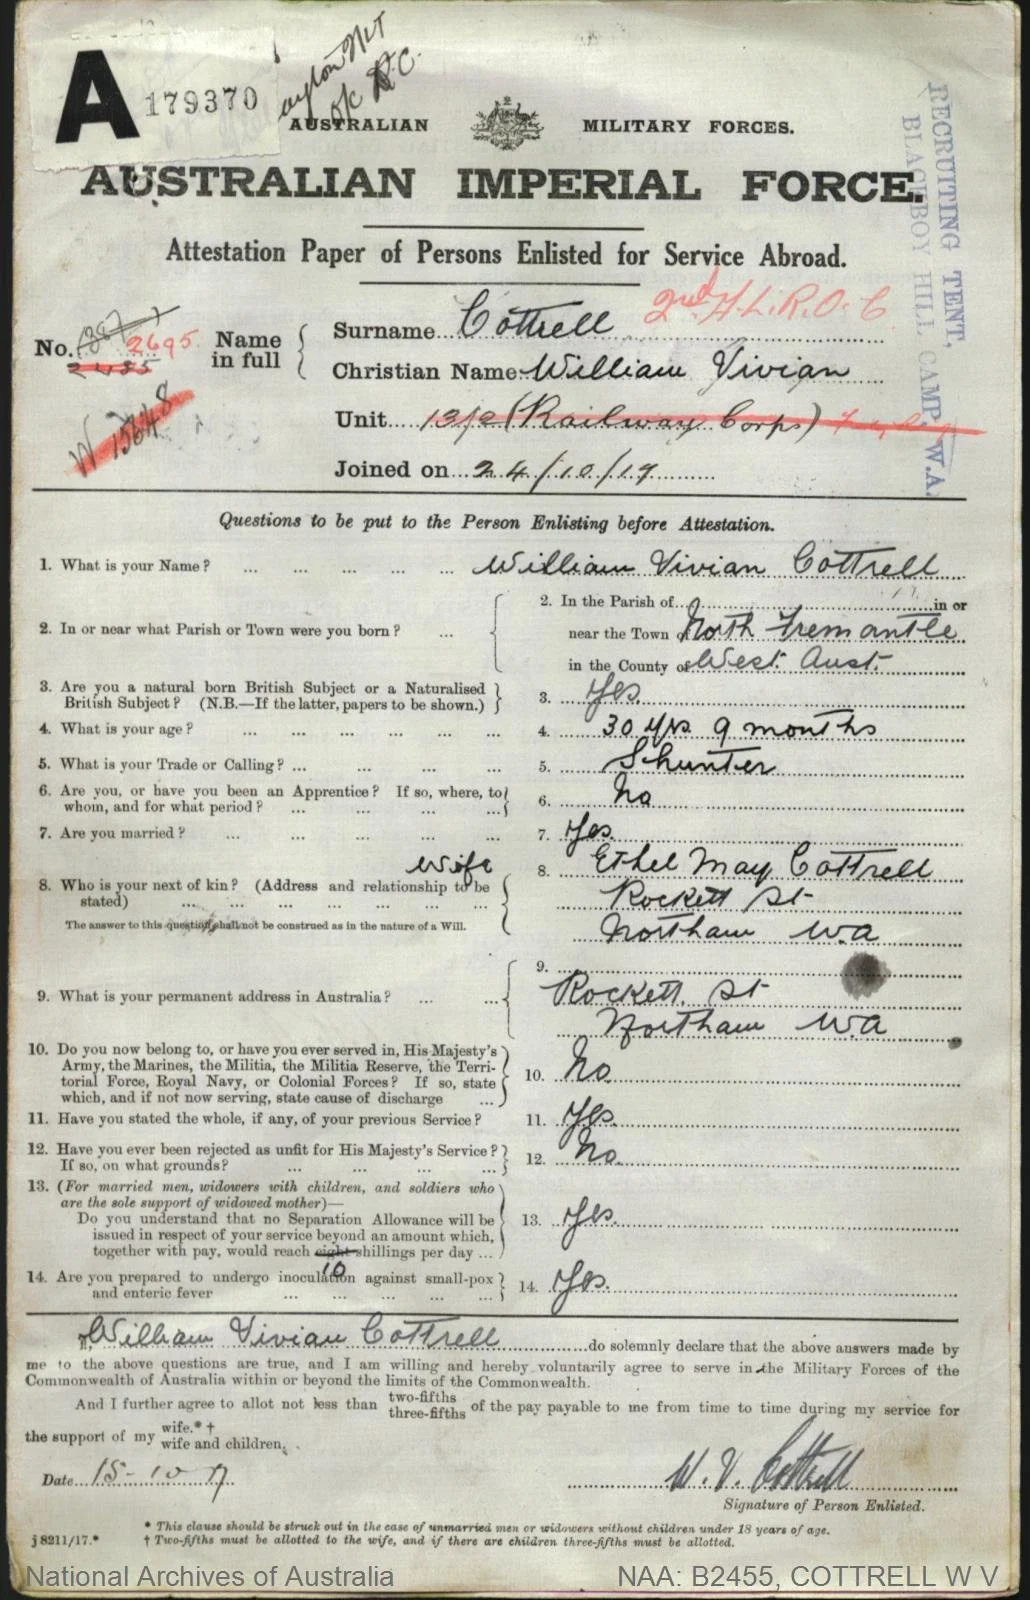 A 179370
o/c
AUSTRALIAN MILITARY FORCES.
AUSTRALIAN IMPERIAL FORCE.
RECRUITING TENT,
BLACKBOY HILL CAMP, W.A.
Attestation Paper of Persons Enlisted for Service Abroad.
No. 2695
W 15648
Name in full
Surname Cottrell
Christian Name William Vivian
Unit 13/2 (Railway Corps)
Joined on 24/10/17
Questions to be put to the Person Enlisting before Attestation.
1. What is your Name? ... ... ... ... ... William Vivian Cottrell
2. In or near what Parish or Town were you born? ...
2. In the Parish of in or
near the Town of North Fremantle
in the County of West. Aust.
3. Are you a natural born British Subject or a Naturalised
British Subject? (N.B.—If the latter, papers to be shown.)
3. Yes.
4. What is your age? ... ... ... ... ... ... 4. 30 yrs 9 months
5. What is your Trade or Calling? ... ... ... ... 5. Shunter
6. Are you, or have you been an Apprentice? If so, where, to
whom, and for what period? ... ... ... ...
6. No
7. Are you married? ... ... ... ... ... 7. Yes.
Wife
8. Who is your next of kin? (Address and relationship to be
stated) ... ... ... ... ... ... ...
The answer to this question shall not be construed as in the nature of a Will.
8. Ethel May Cottrell
Rockett St
Northam W.A
9. What is your permanent address in Australia? ... ...
9.
Rockett. St
Northam W.A
10. Do you now belong to, or have you ever served in, His Majesty's
Army, the Marines, the Militia, the Militia Reserve, the Terri-
torial Force, Royal Navy, or Colonial Forces? If so, state
which, and if not now serving, state cause of discharge ...
10. No.
11. Have you stated the whole, if any, of your previous Service? 11. Yes.
12. Have you ever been rejected as unfit for His Majesty's Service?
If so, on what grounds? ... ... ... ...
12. No.
13. (For married men, widowers with children, and soldiers who
are the sole support of widowed mother)—
Do you understand that no Separation Allowance will be
issued in respect of your service beyond an amount which,
together with pay, would reach eight shillings per day ...
10
13. Yes.
14. Are you prepared to undergo inoculation against small-pox
and enteric fever ... ... ... ... ...
14. Yes.
I, William Vivian Cottrell do solemnly declare that the above answers made by
me to the above questions are true, and I am willing and hereby voluntarily agree to serve in the Military Forces of the
Commonwealth of Australia within or beyond the limits of the Commonwealth.
And I further agree to allot not less than two-fifths three-fifths of the pay payable to me from time to time during my service for
the support of my wife.* † wife and children.
Date 15-10-17
W. V. Cottrell
Signature of Person Enlisted.
* This clause should be struck out in the case of unmarried men or widowers without children under 18 years of age.
j8211/17.* † Two-fifths must be allotted to the wife, and if there are children three-fifths must be allotted.
National Archives of Australia NAA: B2455, COTTRELL W V